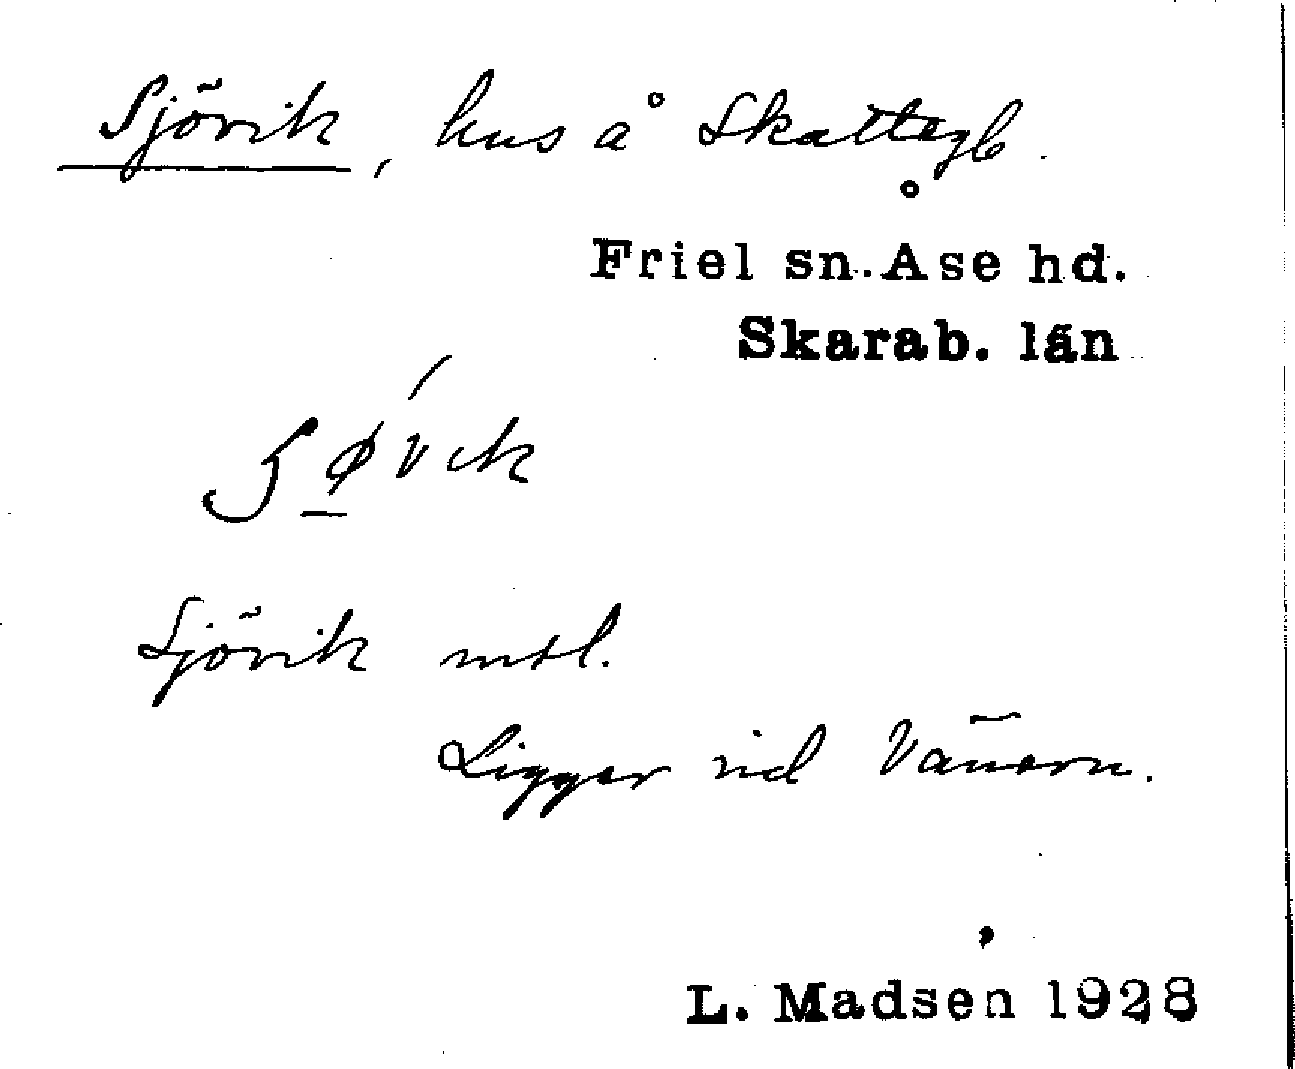 Sjövik, hus å Skattegb.
Friel sn. Åse hd.
Skarab. län
Sjövik mtl.
Ligger vid Vänern.
L. Madsen 1928